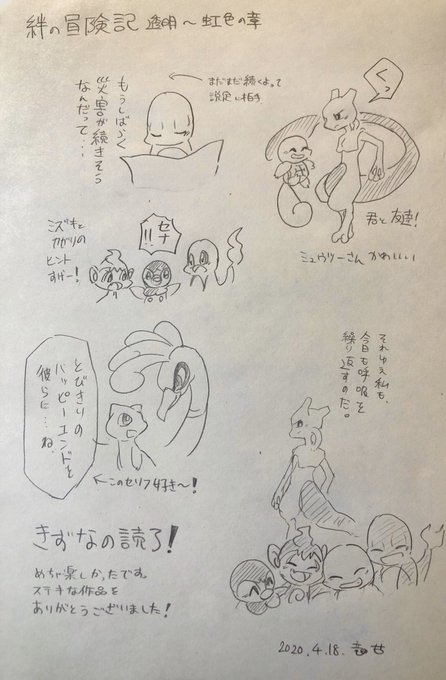 絆の冒険記 透明〜虹色の章
まだまだ続くよって
設定い相手
もうしばらく
災害が続きそう
なんだって…
くっ
君と友達!
ミュウツーさん かわいい
セナ
!!
ミズキと
カガリの
ヒント
すげー!
それゆえ私も、
今日も呼吸を
繰り返すのだ。
とびきりの
ハッピーエンドを
彼らに…ね
←このセリフ好き〜!
きずなの読了!
めちゃ楽しかったです。
ステキな作品を
ありがとうございました!
2020.4.18.